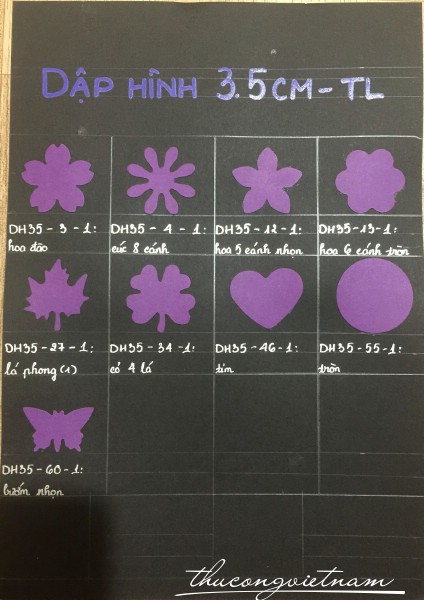 DẬP HÌNH 3.5CM-TL
DH35 - 3 - 1:
hoa đào
DH35 - 4 - 1:
cúc 8 cánh
DH35 - 12 - 1:
hoa 5 cánh nhọn
DH35-13-1:
hoa 6 cánh tròn
DH35 - 27 - 1:
lá phong (1)
DH35 - 34 - 1:
cỏ 4 lá
DH35 - 46 - 1:
tim
DH35 - 55 - 1:
tròn
DH35 - 60 - 1:
bướm nhọn
thucongvietnam